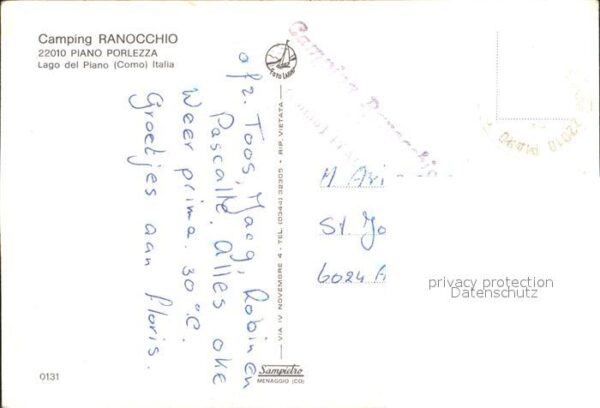 Camping RANOCCHIO
22010 PIANO PORLEZZA
Lago del Piano (Como) Italia
afz. Toos, Jacq, Robin en
Pascalle. Alles oke
Weer prima. 30 °C.
Groetjes aan Floris.
FOTO LABOR
VIA IV NOVEMBRE 4 - TEL. (0344) 32305 - RIP. VIETATA
Sampietro
MENAGGIO (CO)
Camping Ranocchio
22010 PIANO
M Ari
St. Jo
6024 A
privacy protection
Datenschutz
0131